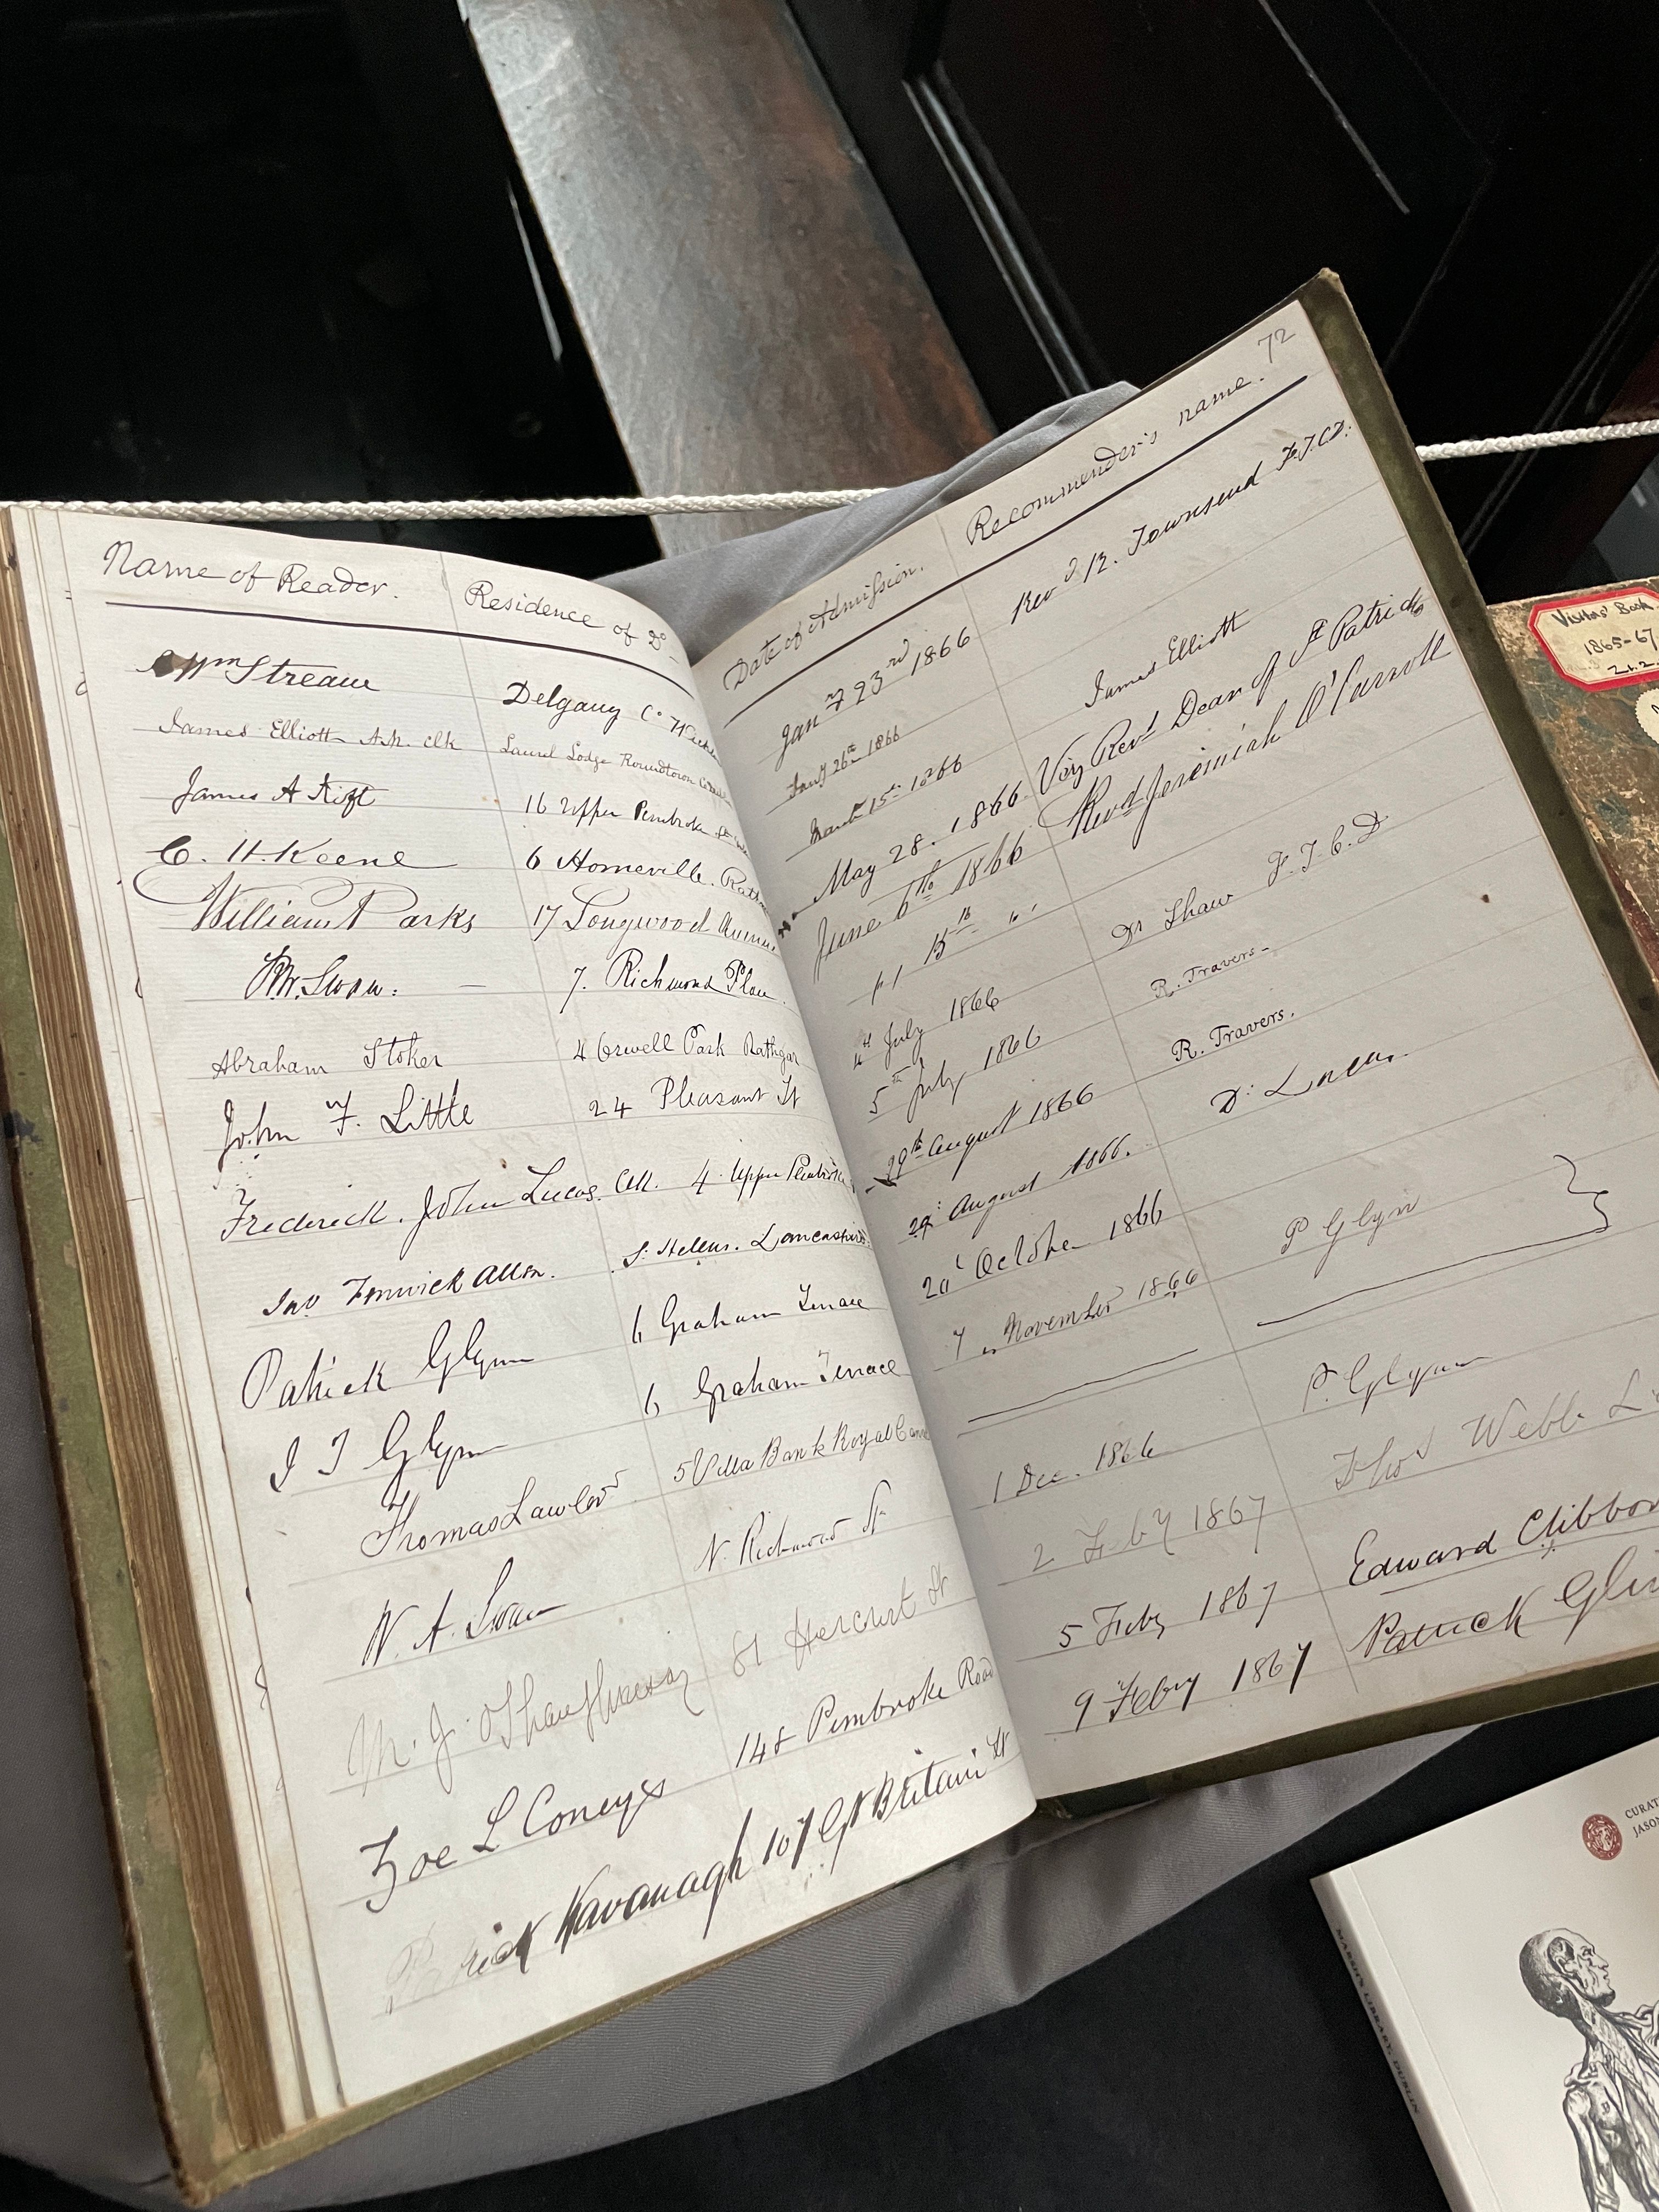 Name of Reader. Residence of Do
Wm Streane Delgany Co
James Elliott Laurel Lodge Roundtown
James A 16 Upper Pembroke
C. H. Keene 6 Homeville. Rath
William Parks 17 Longwood Avenue
Swan. 7. Richmond Place
Abraham Stoker 4 Orwell Park Rathgar
John F. Little 24 Pleasant St
Frederick. John Lucas. Clk. 4. Upper Pembroke
Jno Fenwick Allen. St Helens. Lancashire
Patrick Glynn 6 Graham Terrace
J T Glynn 6 Graham Terrace
Thomas Lawlor 5 Villa Bank Royal Canal
W. A. Swan N. Richmond St
M. J. O'Shaughnessy 81 Harcourt St
Zoe L Coneys 148 Pembroke Road
Patrick Kavanagh 107 Gt Britain St
72
Date of Admission. Recommender's name.
Jany 23rd 1866 Revd R. Townsend F.T.C.D.
Jany 26th 1866 James Elliott
March 15th 1866
May 28. 1866. Very Revd Dean of St Patricks
June 6th 1866 Revd Jeremiah O'Carroll
15th
July 1866 Dr Shaw F.T.C.D
5th July 1866 R. Travers.
29th August 1866 R. Travers.
29 August 1866. Dr Lucas.
October 1866
7 November 1866 P Glynn
1 Dec. 1866 P. Glynn
2 Feby 1867 Thos Webb
5 Feby 1867 Edward Clibborn
9 Feby 1867 Patrick
Visitors' Book
1865-67
CURAT
JASON
MARSH'S LIBRARY, DUBLIN